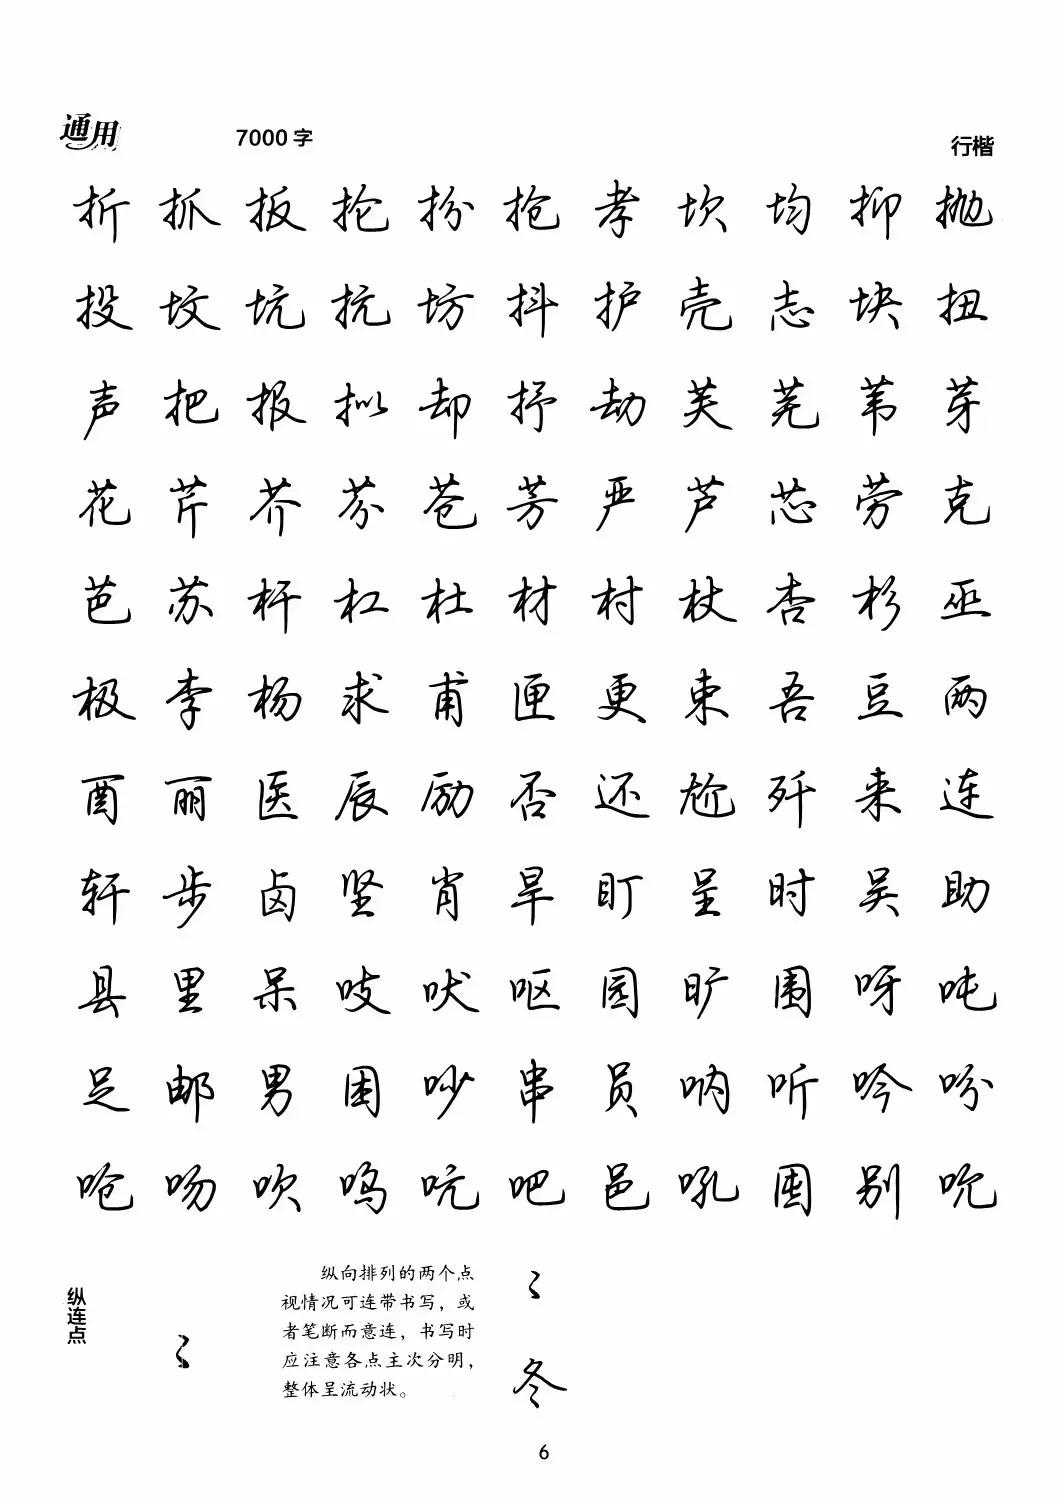 通用 7000 字 行楷
折 抓 扳 抡 扮 抢 孝 坎 均 抑 抛
投 坟 坑 抗 坊 抖 护 壳 志 块 扭
声 把 报 拟 却 抒 劫 芙 芜 苇 芽
花 芹 芥 芬 苍 芳 严 芦 芯 劳 克
芭 苏 杆 杠 杜 材 村 杖 杏 杉 巫
极 李 杨 求 甫 匣 更 束 吾 豆 两
酉 丽 医 辰 励 否 还 尬 歼 来 连
轩 步 卤 坚 肖 旱 盯 呈 时 吴 助
县 里 呆 吱 吠 呕 园 旷 围 呀 吨
足 邮 男 困 吵 串 员 呐 听 吟 吩
呛 吻 吹 呜 吭 吧 邑 吼 囤 别 吮
纵连点
纵向排列的两个点
视情况可连带书写，或
者笔断而意连，书写时
应注意各点主次分明，
整体呈流动状。
冬
6